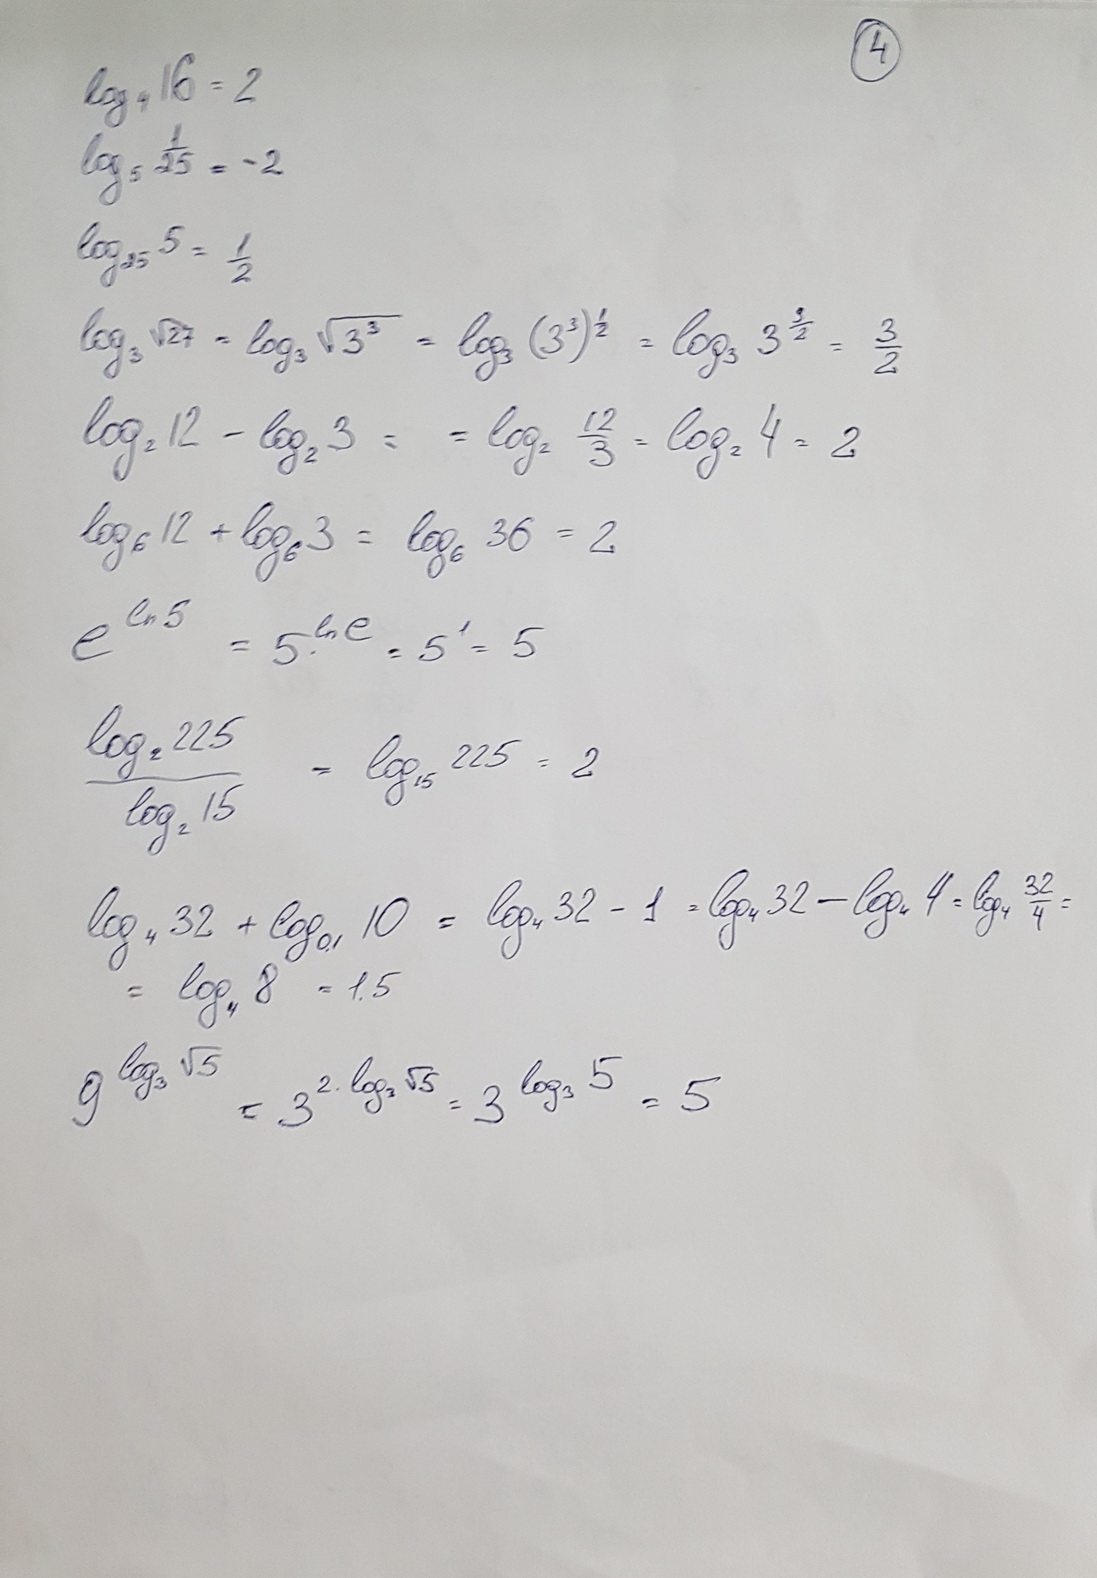 4
log₄ 16 = 2
log₅ 1/25 = -2
log₂₅ 5 = 1/2
log₃ √27 = log₃ √3³ = log₃ (3³)^1/2 = log₃ 3^3/2 = 3/2
log₂ 12 - log₂ 3 = = log₂ 12/3 = log₂ 4 = 2
log₆ 12 + log₆ 3 = log₆ 36 = 2
e^ln 5 = 5^ln e = 5¹ = 5
log₂ 225 / log₂ 15 = log₁₅ 225 = 2
log₄ 32 + log₀,₁ 10 = log₄ 32 - 1 = log₄ 32 - log₄ 4 = log₄ 32/4 =
= log₄ 8 = 1.5
9^log₃ √5 = 3^2·log₃ √5 = 3^log₃ 5 = 5